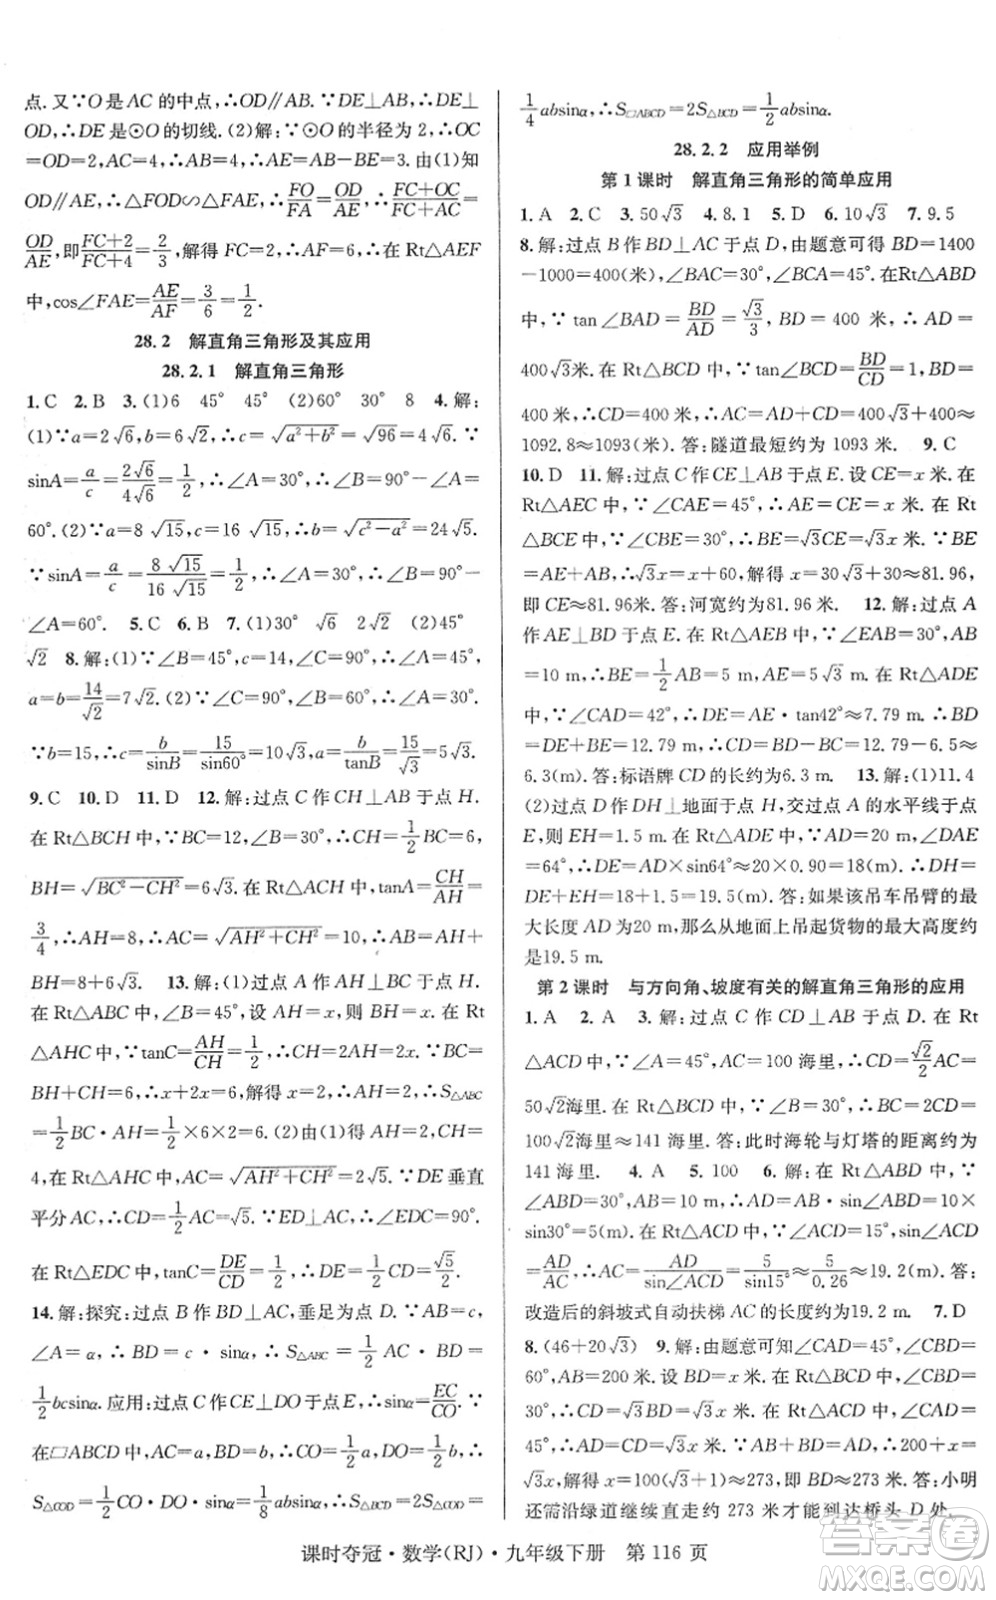 点. 又∵O是AC的中点,∴OD∥AB. ∵DE⊥AB,∴DE⊥
OD,∴DE是⊙O的切线. (2)解:∵⊙O的半径为2,∴OC
=OD=2,AC=4,∴AB=AC=4. ∵AE=3. 由(1)知
OD∥AE,∴△FOD∽△FAE,∴FO/FA=OD/AE,∴(FC+OC)/(FC+AC)=
OD/AE,即(FC+2)/(FC+4)=2/3,解得 FC=2,∴AF=6,∴在 Rt△AEF
中,cos∠FAE=AE/AF=3/6=1/2.
28.2 解直角三角形及其应用
28.2.1 解直角三角形
1. C 2. B 3. (1)6 45° 45° (2)60° 30° 8 4. 解:
(1)∵a=2√6,b=6√2,∴c=√(a²+b²)=√96=4√6. ∵
sinA=a/c=2√6/4√6=1/2,∴∠A=30°,∴∠B=90°-∠A=
60°. (2)∵a=8√15,c=16√15,∴b=√(c²-a²)=24√5.
∵sinA=a/c=8√15/16√15=1/2,∴∠A=30°,∴∠B=90°-
∠A=60°. 5. C 6. B 7. (1)30° √6 2√2 (2)45°
√2 8. 解:(1)∵∠B=45°,∠C=90°,∴∠A=45°,∴
a=b=14/√2=7√2. (2)∵∠C=90°,∠B=60°,∴∠A=30°.
∵b=15,∴c=b/sinB=15/sin60°=10√3,a=b/tanB=15/√3=5√3.
9. C 10. D 11. D 12. 解:过点C作CH⊥AB于点H.
在Rt△BCH中,∵BC=12,∠B=30°,∴CH=1/2BC=6,
BH=√(BC²-CH²)=6√3. 在Rt△ACH中,tanA=CH/AH=
3/4,∴AH=8,∴AC=√(AH²+CH²)=10,∴AB=AH+
BH=8+6√3. 13. 解:(1)过点A作AH⊥BC于点H.
在Rt△ABH中,∵∠B=45°,设AH=x,则BH=x. 在Rt
△AHC中,∵tanC=AH/CH=1/2,∴CH=2AH=2x. ∵BC=
BH+CH=6,∴x+2x=6,解得x=2,∴AH=2,∴S△ABC
=1/2BC·AH=1/2×6×2=6. (2)由(1)知AH=2,CH=
4,在Rt△AHC中,AC=√(AH²+CH²)=2√5. ∵DE垂直
平分AC,∴CD=1/2AC=√5. ∵ED⊥AC,∴∠EDC=90°.
在Rt△EDC中,tanC=DE/CD=1/2,∴DE=1/2CD=√5/2.
14. 解:探究:过点B作BD⊥AC,垂足为点D. ∵AB=c,
∠A=α,∴BD=c·sinα,∴S△ABC=1/2AC·BD=
1/2bcsinα. 应用:过点C作CE⊥DO于点E,∴sinα=EC/CO. ∵
在▱ABCD中,AC=a,BD=b,∴CO=1/2a,DO=1/2b,∴
S△COD=1/2CO·DO·sinα=1/8absinα,∴S△BCD=2S△COD=
1/4absinα,∴S▱ABCD=2S△BCD=1/2absinα.
28.2.2 应用举例
第1课时 解直角三角形的简单应用
1. A 2. C 3. 50√3 4. 8.1 5. D 6. 10√3 7. 9.5
8. 解:过点B作BD⊥AC于点D,由题意可得BD=1400
-1000=400(米),∠BAC=30°,∠BCA=45°. 在Rt△ABD
中,∵tan∠BAD=BD/AD=√3/3,BD=400米,∴AD=
400√3米. 在Rt△BCD中,∵tan∠BCD=BD/CD=1,BD=
400米,∴CD=400米,∴AC=AD+CD=400√3+400≈
1092.8≈1093(米). 答:隧道最短约为1093米. 9. C
10. D 11. 解:过点C作CE⊥AB于点E. 设CE=x米. 在
Rt△AEC中,∵∠CAE=45°,∴AE=CE=x米. 在Rt
△BCE中,∵∠CBE=30°,∴BE=√3CE=√3x米. ∵BE
=AE+AB,∴√3x=x+60,解得x=30√3+30≈81.96,
即CE≈81.96米. 答:河宽约为81.96米. 12. 解:过点A
作AE⊥BD于点E. 在Rt△AEB中,∵∠EAB=30°,AB=
10 m,∴BE=1/2AB=5 m,AE=5√3 m. 在Rt△ADE
中,∵∠CAD=42°,∴DE=AE·tan42°≈7.79 m,∴BD
=DE+BE=12.79 m,∴CD=BD-BC=12.79-6.5≈
6.3(m). 答:标语牌CD的长约为6.3 m. 13. (1)11.4
(2)过点D作DH⊥地面于点H,交过点A的水平线于点
E,则EH=1.5 m. 在Rt△ADE中,∵AD=20 m,∠DAE
=64°,∴DE=AD×sin64°≈20×0.90=18(m),∴DH=
DE+EH=18+1.5=19.5(m). 答:如果该吊车吊臂的最
大长度AD为20 m,那么从地面上吊起货物的最大高度约
是19.5 m.
第2课时 与方向角、坡度有关的解直角三角形的应用
1. A 2. A 3. 解:过点C作CD⊥AB于点D. 在Rt
△ACD中,∵∠A=45°,AC=100海里,∴CD=√2/2AC=
50√2海里. 在Rt△BCD中,∵∠B=30°,∴BC=2CD=
100√2海里≈141海里. 答:此时海轮与灯塔的距离约为
141海里. 4. A 5. 100 6. 解:在Rt△ABD中,∵
∠ABD=30°,AB=10 m,∴AD=AB·sin∠ABD=10×
sin30°=5(m). 在Rt△ACD中,∵∠ACD=15°,sin∠ACD
=AD/AC,∴AC=AD/sin∠ACD=5/sin15°≈5/0.26≈19.2(m). 答:
改造后的斜坡式自动扶梯AC的长度约为19.2 m. 7. D
8. (46+20√3) 9. 解:由题意可知∠CAD=45°,∠CBD=
60°. 设BD=x米. 在Rt△BCD中,∵∠BCD=90°-∠CBD=
30°,∴CD=√3BD=√3x米. 在Rt△ACD中,∵∠CAD=
45°,∴AD=CD=√3x米. ∵AB+BD=AD,∴200+x=
√3x,解得x=100(√3+1)≈273,即BD≈273米. 答:小明
还需沿绿道继续直走约273米才能到达桥头D处.
课时夺冠·数学(RJ)·九年级下册 第116页
答案圈
MXQE.COM